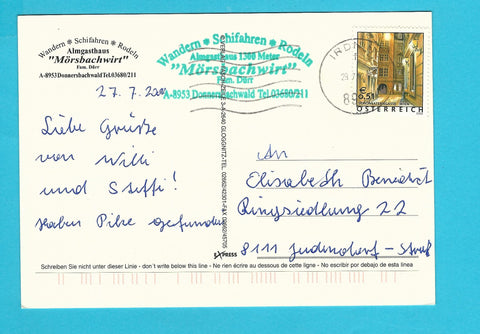 Wandern ● Schifahren ● Rodeln
Almgasthaus
"Mörsbachwirt"
Fam. Dürr
A-8953 Donnersbachwald Tel.03680/211
Wandern ● Schifahren ● Rodeln
Almgasthaus 1300 Meter
"Mörsbachwirt"
Fam. Dürr
A-8953 Donnersbachwald Tel.03680/211
IRDN
€ 0,51
ÖSTERREICH
27.7.
Liebe Grüsse
von Willi
und Steffi!
haben Pilze gefunden
An
Elisabeth Benedikt
Ringsiedlung 22
8111 Judendorf-Straß
EXPRESS
Schreiben Sie nicht unter dieser Linie - don't write below this line - Ne rien écrire au dessous de cette ligne - No escribir por debajo de esta linea